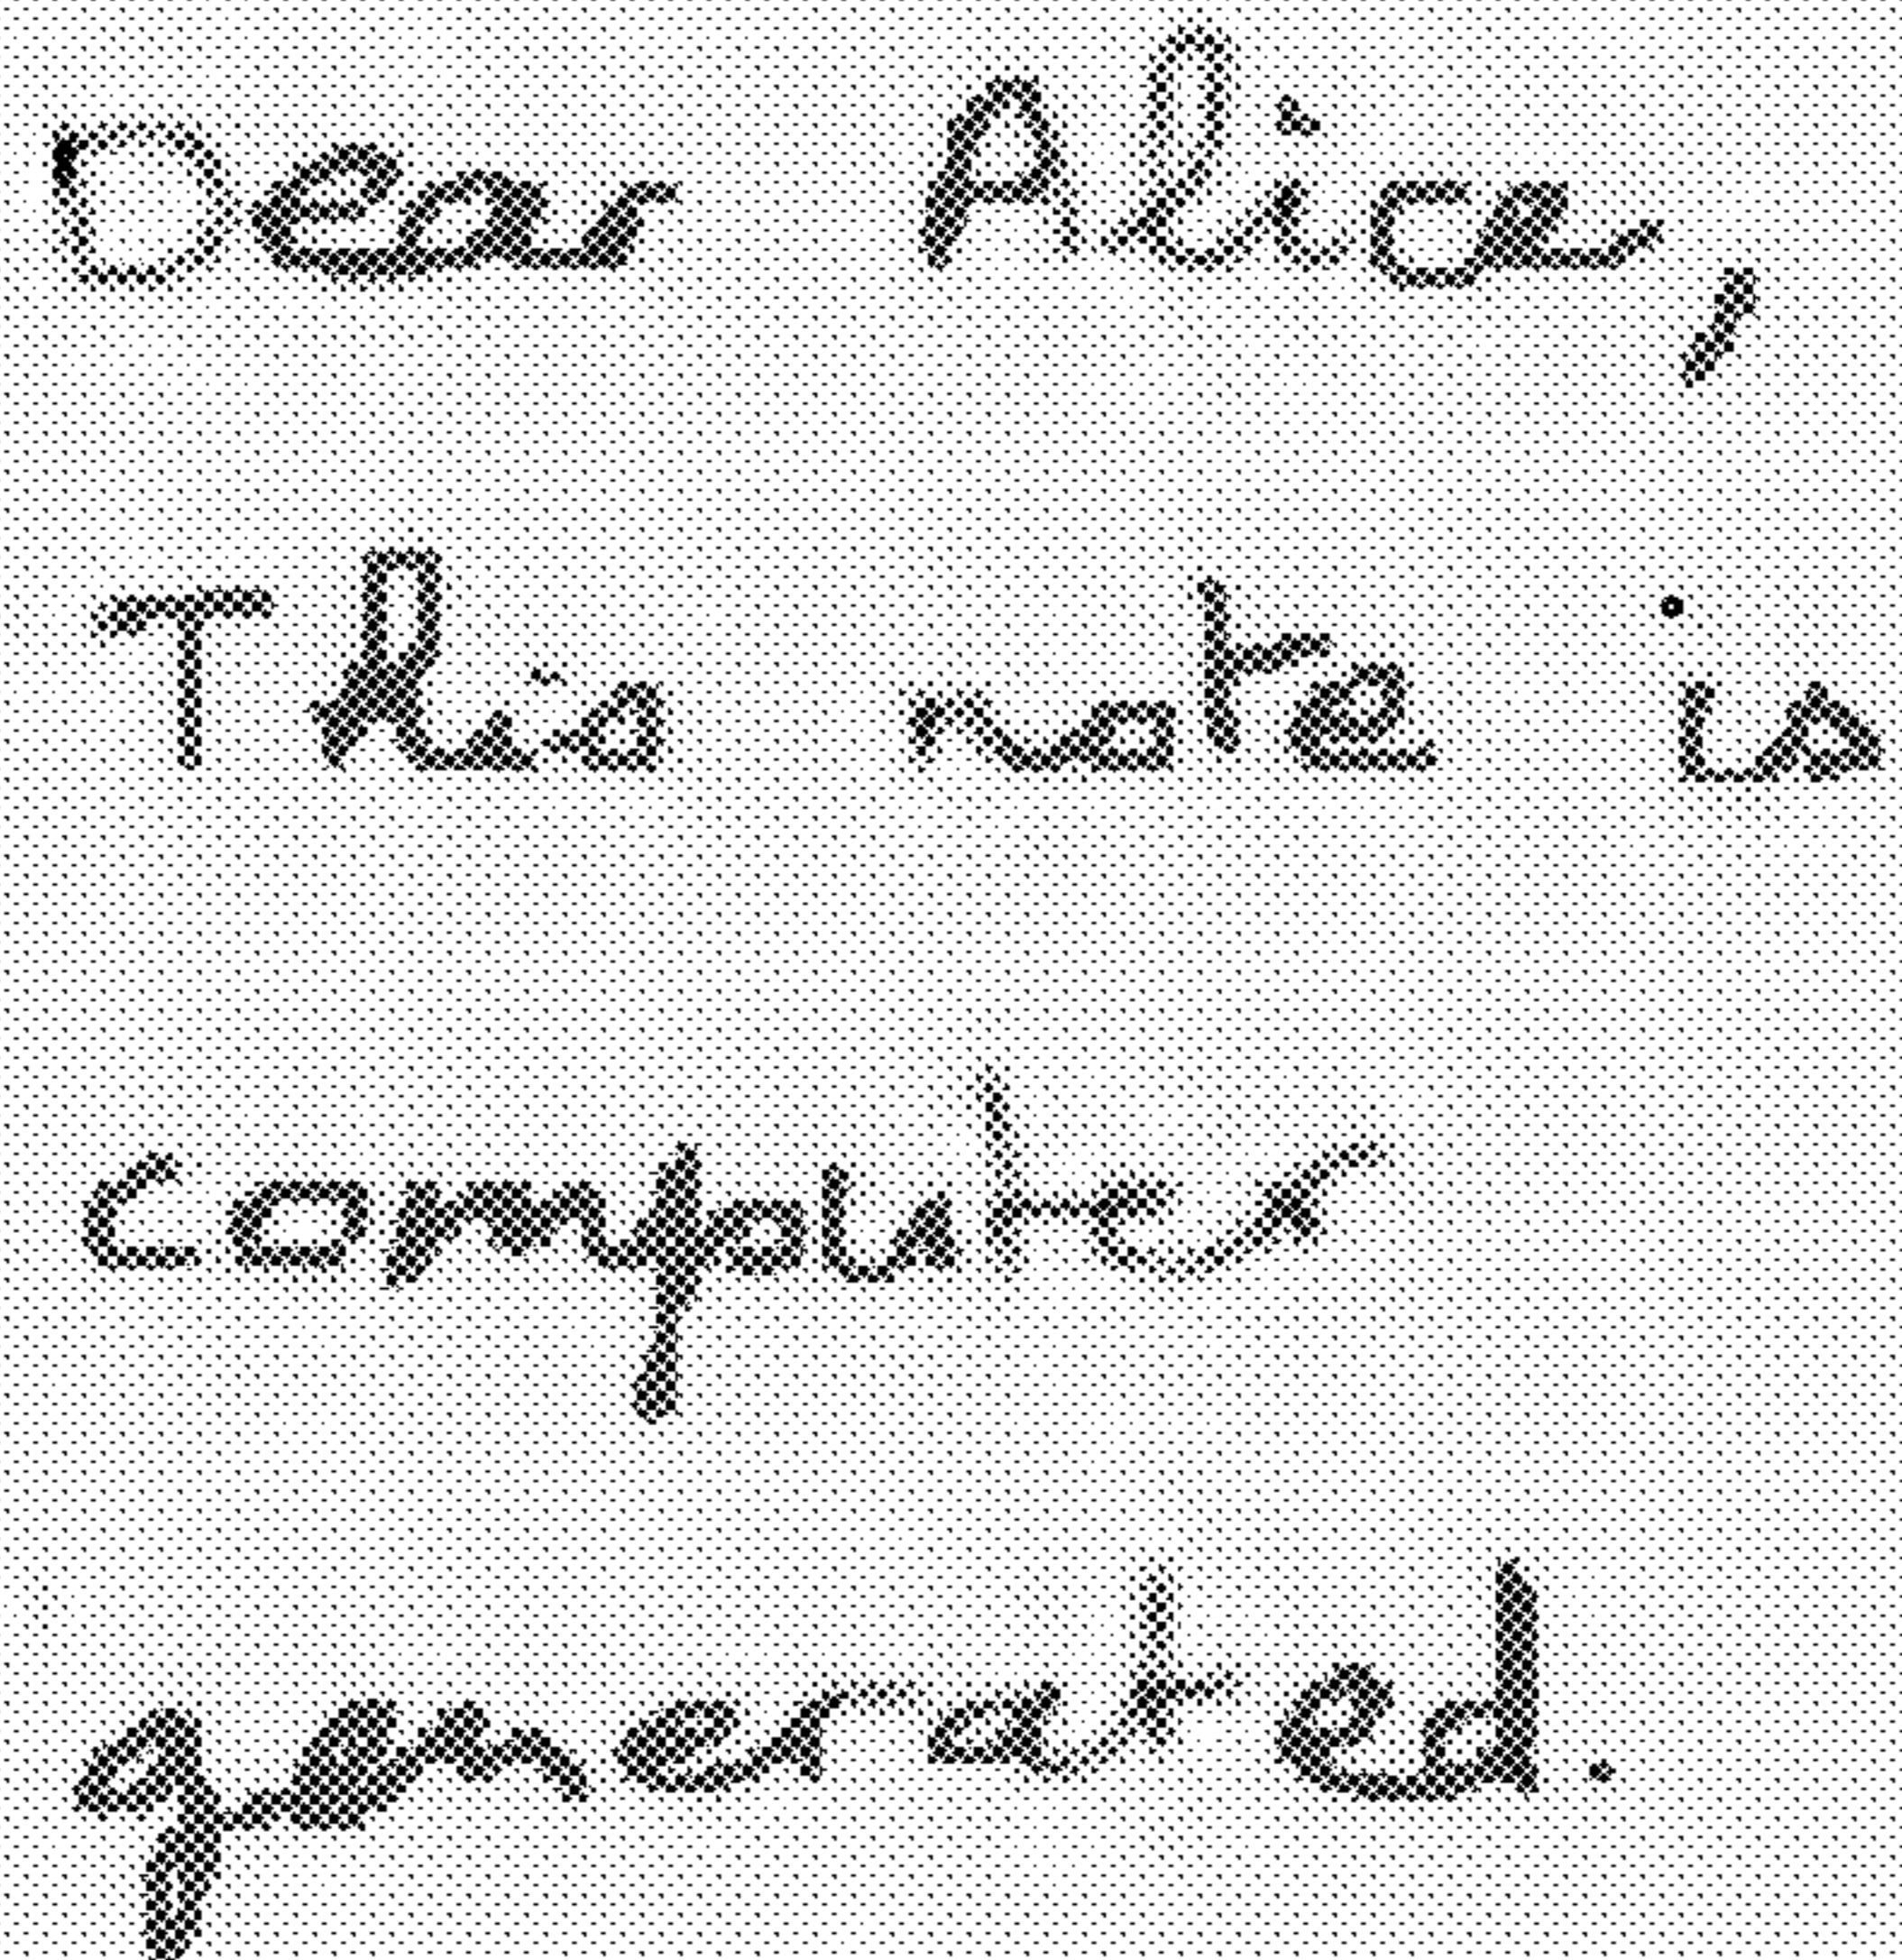 Dear Alice,
This note is
Computer
generated.